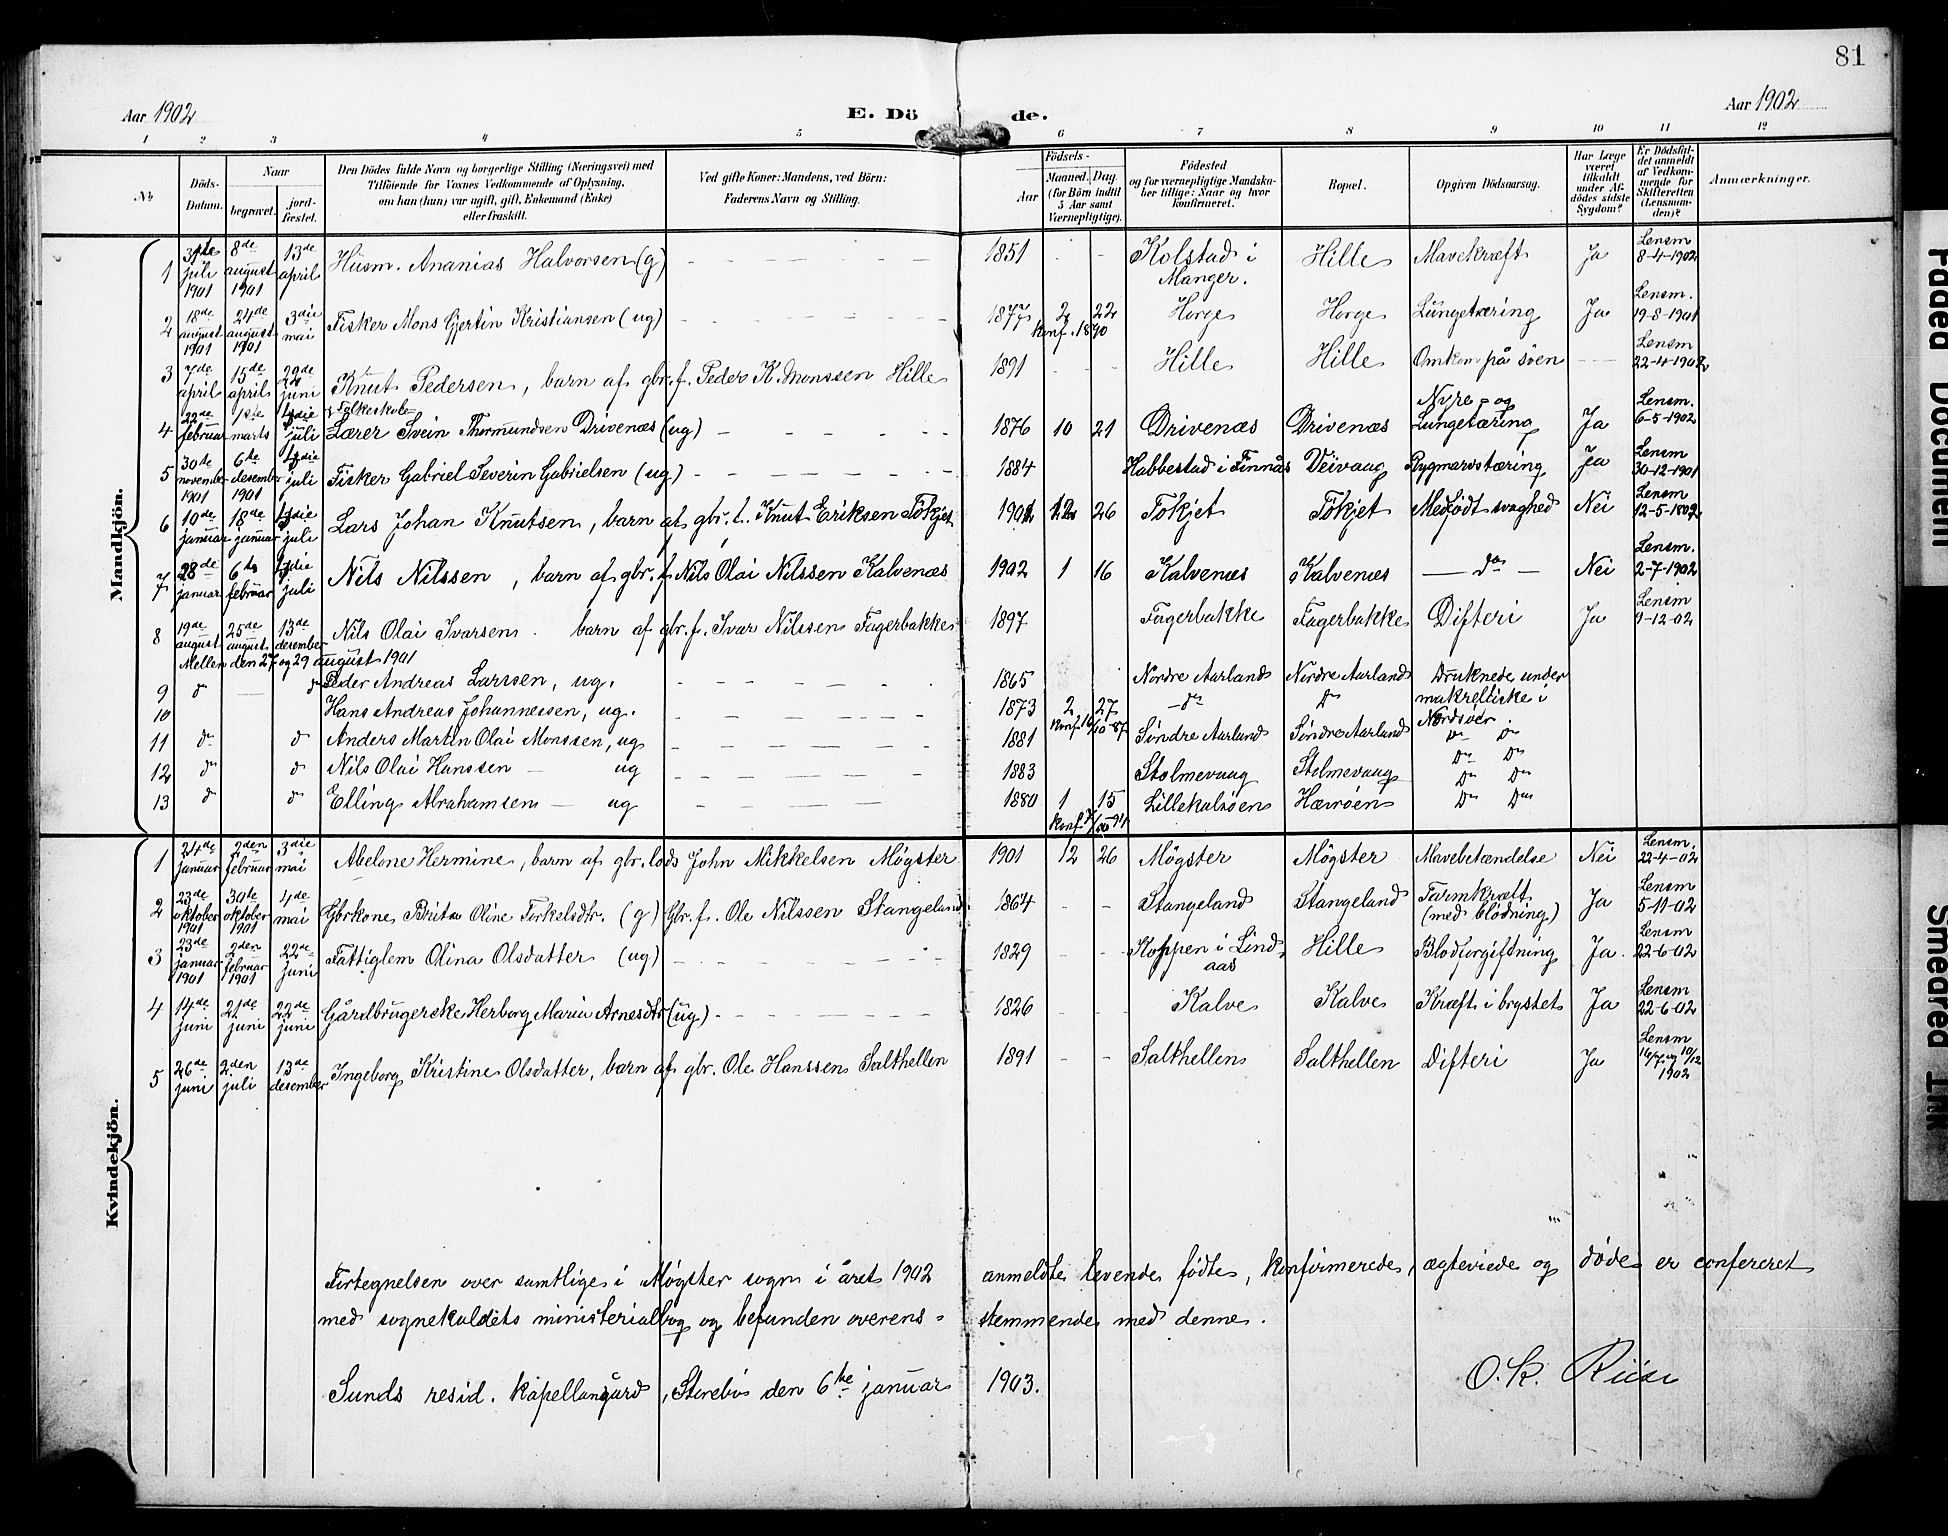 81
Aar 1902
E. Dö de.
Aar 1902
1 2 3 4 5 6 7 8 9 10 11 12
№
Döds-Datum.
Naar
begravet.
jord-fæstet.
Den Dödes fulde Navn og borgerlige Stilling (Næringsvei) med
Tilföiende for Voxnes Vedkommende af Oplysning,
om han (hun) var ugift, gift, Enkemand (Enke)
eller fraskilt.
Ved gifte Koner: Mandens, ved Börn:
Faderens Navn og Stilling.
Födsels-
Aar
Maaned. Dag.
(for Börn indtil
5 Aar samt
Værnepligtige).
Födested
og for værnepligtige Mandska-
ber tillige: Naar og hvor
konfirmeret.
Bopæl.
Opgiven Dödsaarsag.
Har Læge
været
tilkaldt
under Af-
dödes sidste
Sygdom?
Er Dödsfal-
det anmeldt
af Vedkom-
mende for
Skifteretten
(Lensman-
den)?
Anmærkninger.
Mandkjön.
1 31te juli 1901 8de august 1901 13de april Husm. Ananias Halvorsen (g) 1851 - - Kolstad i Manger. Hille Mavekræft Ja Lensm 8-4-1902
2 18de august 1901 24de august 1901 3die mai Fisker Mons Gjertin Kristiansen (ug) 1877 2 22 Konf. 1890 Horge Horge Lungetæring Ja Lensm. 19-8-1901
3 7de april 15de april 22de juni Knut Pedersen, barn af gbr. f. Peder K. Monssen Hille 1891 Hille Hille Omkom på söen Lensm 22-4-1902
4 22de februar 1ste marts 13die juli Folkeskole Lærer Svein Thormundsen Drivenæs (ug) 1876 10 21 Drivenæs Drivenæs Nyre- og Lungetæring Ja Lensm. 6-5-1902
5 30te november 1901 6te desember 1901 13die juli Fisker Gabriel Severin Gabrielsen (ug) 1884 Habbestad i Finnås Veivaag Rygmarvstæring Ja Lensm 30-12-1901
6 10de januar 18de januar 13die juli Lars Johan Knutsen, barn af gbr. f. Knut Eriksen Tökjet 1901 12 26 Tökjet Tökjet Medfödt svaghed Nei Lensm 12-5-1902
7 28de januar 6te februar 13die juli Nils Nilssen, barn af gbr. f. Nils Olai Nilssen Kalvenæs 1902 1 16 Kalvenæs Kalvenæs — do — Nei Lensm. 2-7-1902
8 19de august 25de august 13de desember Nils Olai Ivarsen. barn af gbr. f. Ivar Nilssen Fagerbakke 1897 Fagerbakke Fagerbakke Difteri Ja Lensm 9-12-02
Mellem den 27 og 29 august 1901
9 do — do Peder Andreas Larssen, ug. 1865 Nordre Aarland Nordre Aarland Druknede under makrelfiske i Nordsöen
10 Hans Andreas Johannessen, ug. 1873 2 27 -do- do
11 do do Anders Martin Olai Monssen, ug 1881 Söndre Aarland Söndre Aarland do do
12 do do Nils Olai Hanssen — ug 1883 Stolmevaag Stolmevaag do do
13 do do Elling Abrahamsen — ug 1880 1 15 Lillekalsöen Hævröen do do
Kvindekjön.
1 24de januar 2den februar 3die mai Abelone Hermine, barn af gbr. lods John Mikkelsen Møgster 1901 12 26 Møgster Møgster Mavebetændelse Nei Lensm. 22-4-02
2 23de oktober 1901 30te oktober 1901 4de mai Gbrkone Brita Oline Torkelsdtr. (g) Gbr. f. Ole Nilssen Stangeland 1864 - - Stangeland Stangeland Tarmkræft (med blödning) Ja Lensm 5-11-02
3 23de januar 1901 2den februar 1901 22de juni Fattiglem Olina Olsdatter (ug) 1829 - - Koppen i Lindaas Hille Blodforgiftning Ja Lensm 22-6-02
4 14de juni 21de juni 22de juni Gårdbrugerske Herborg Maria Arnesdtr (ug) 1826 Kalve Kalve Kræft i brystet Ja Lensm 22-6-02
5 26de juni 2den juli 13de desember Ingeborg Kristine Olsdatter, barn af gbr. Ole Hanssen Salthellen 1891 - - Salthellen Salthellen Difteri Ja Lensm 16/7 og 10/12 1902
Fortegnelsen over samtlige i Møgster sogn i året 1902 anmeldte levende födte, konfirmerede, ægteviede og döde er confereret
med sognekaldets ministerialbog og befunden overens- stemmende med denne.
Sunds resid. kapellangård, Storebö den 6te januar 1903.
O. K. Riise
Faded Document
Smeared Ink